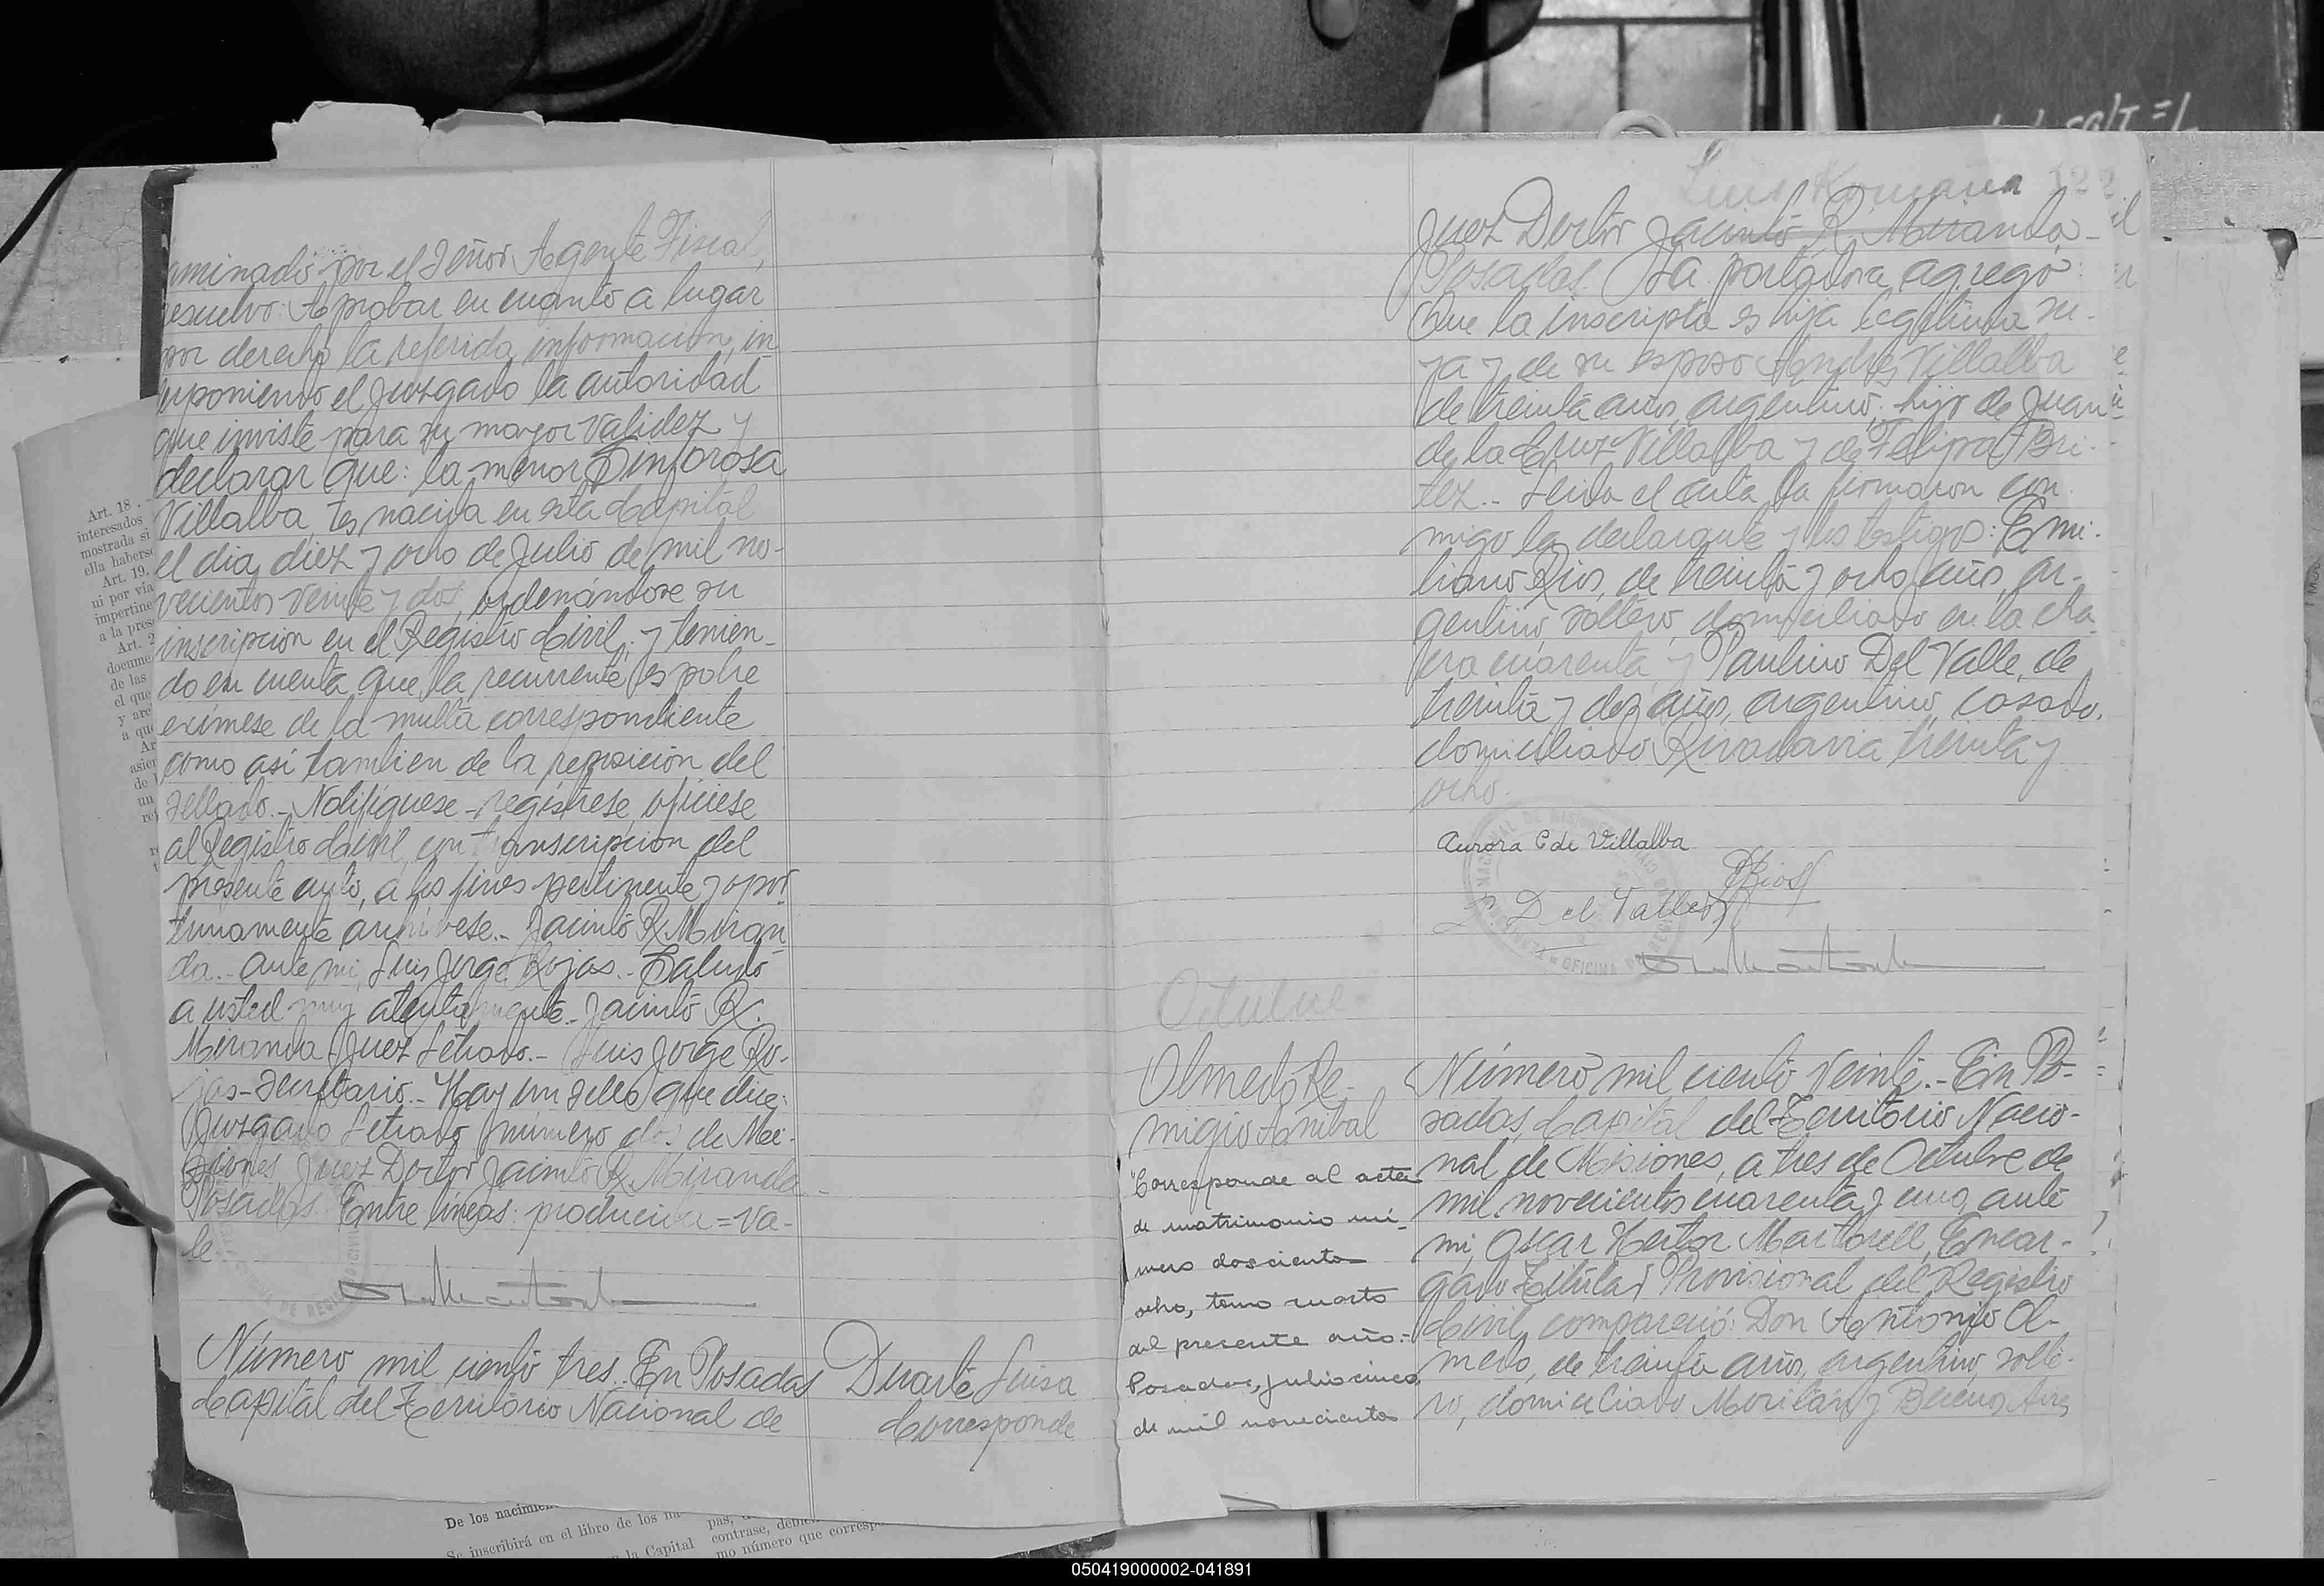 aminado por el Señor Agente Fiscal,
resuelvo: Aprobar en cuanto a lugar
por derecho la referida información, in
terponiendo el Juzgado la autoridad
que inviste para su mayor validez y
declarar que: la menor Sinforosa
Villalba, es nacida en esta Capital
el dia diez y ocho de Julio de mil no-
vecientos veinte y dos, ordenándose su
inscripcion en el Registro Civil; y tenien-
do en cuenta que la recurrente es pobre
exímese de la multa correspondiente
como asi tambien de la reposición del
sellado.- Notifíquese - regístrese, ofíciese
al Registro Civil con transcripcion del
presente auto, a los fines pertinente y opor
tunamente archivese.- Jacinto R. Miran
da.- Ante mi, Luis Jorge Rojas.- Saludo
a usted muy atentamente.- Jacinto R.
Miranda Juez Letrado.- Luis Jorge Ro-
jas - Secretario.- Hay un sello que dice:
Juzgado Letrado número dos de Mi-
siones, Juez Doctor Jacinto R. Miranda -
Posadas. Entre líneas: producida = Va-
le
Número mil ciento tres.. En Posadas
Capital del Territorio Nacional de
Duarte Luisa
Corresponde
Art. 18
interesados
mostrada si
ella haberse
Art. 19.
ni por vía
impertine
a la pres
Art. 2
docume
de las
el que
y are
a que
De los nacimien
Se inscribirá en el libro de los na
la Capital
pas,
contrase, debie
mo número que corresp
Luis Romana
Juez Doctor Jacinto R. Miranda -
Posadas. La portadora agregó:
Que la inscripta es hija legítima su-
ya y de su esposo Andrés Villalba
de treinta años, argentino, hijo de Juan
de la Cruz Villalba y de Felipa Bri-
tez.- Leida el acta la firmaron con
migo la declarante y los testigos: Emi-
liano Rios, de treinta y ocho años, ar-
gentino, soltero, domiciliado en la cha
cra cuarenta y Paulino Del Valle, de
treinta y dos años, argentino, casado,
domiciliado Rivadavia treinta y
ocho.
Aurora C de Villalba
ERios
P. Del Valle
Octubre
Olmedo Re-
migio Anibal
"Corresponde al acta
de matrimonio nú-
mero doscientos
ocho, tomo cuarto
del presente año.-
Posadas, julio cinco
de mil novecientos
Número mil ciento veinte.- En Po-
sadas, Capital del Territorio Nacio-
nal de Misiones, a tres de Octubre de
mil novecientos cuarenta y uno, ante
mi, Oscar Hector Martorell, Encar-
gado Titular Provisional del Registro
Civil, compareció: Don Antonio Ol-
medo, de treinta años, argentino, solte-
ro, domiciliado Moritán y Buenos Aires
050419000002-041891